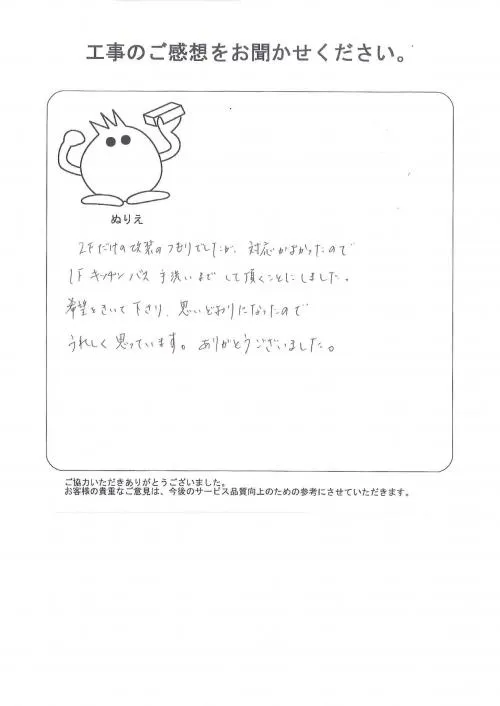 工事のご感想をお聞かせください。
ぬりえ
2Fだけの改装のつもりでしたが、対応がよかったので
1F キッチン バス 手洗いまで して頂くことにしました。
希望をきいて下さり、思いどおりになったので
うれしく思っています。ありがとうございました。
ご協力いただきありがとうございました。
お客様の貴重なご意見は、今後のサービス品質向上のための参考にさせていただきます。